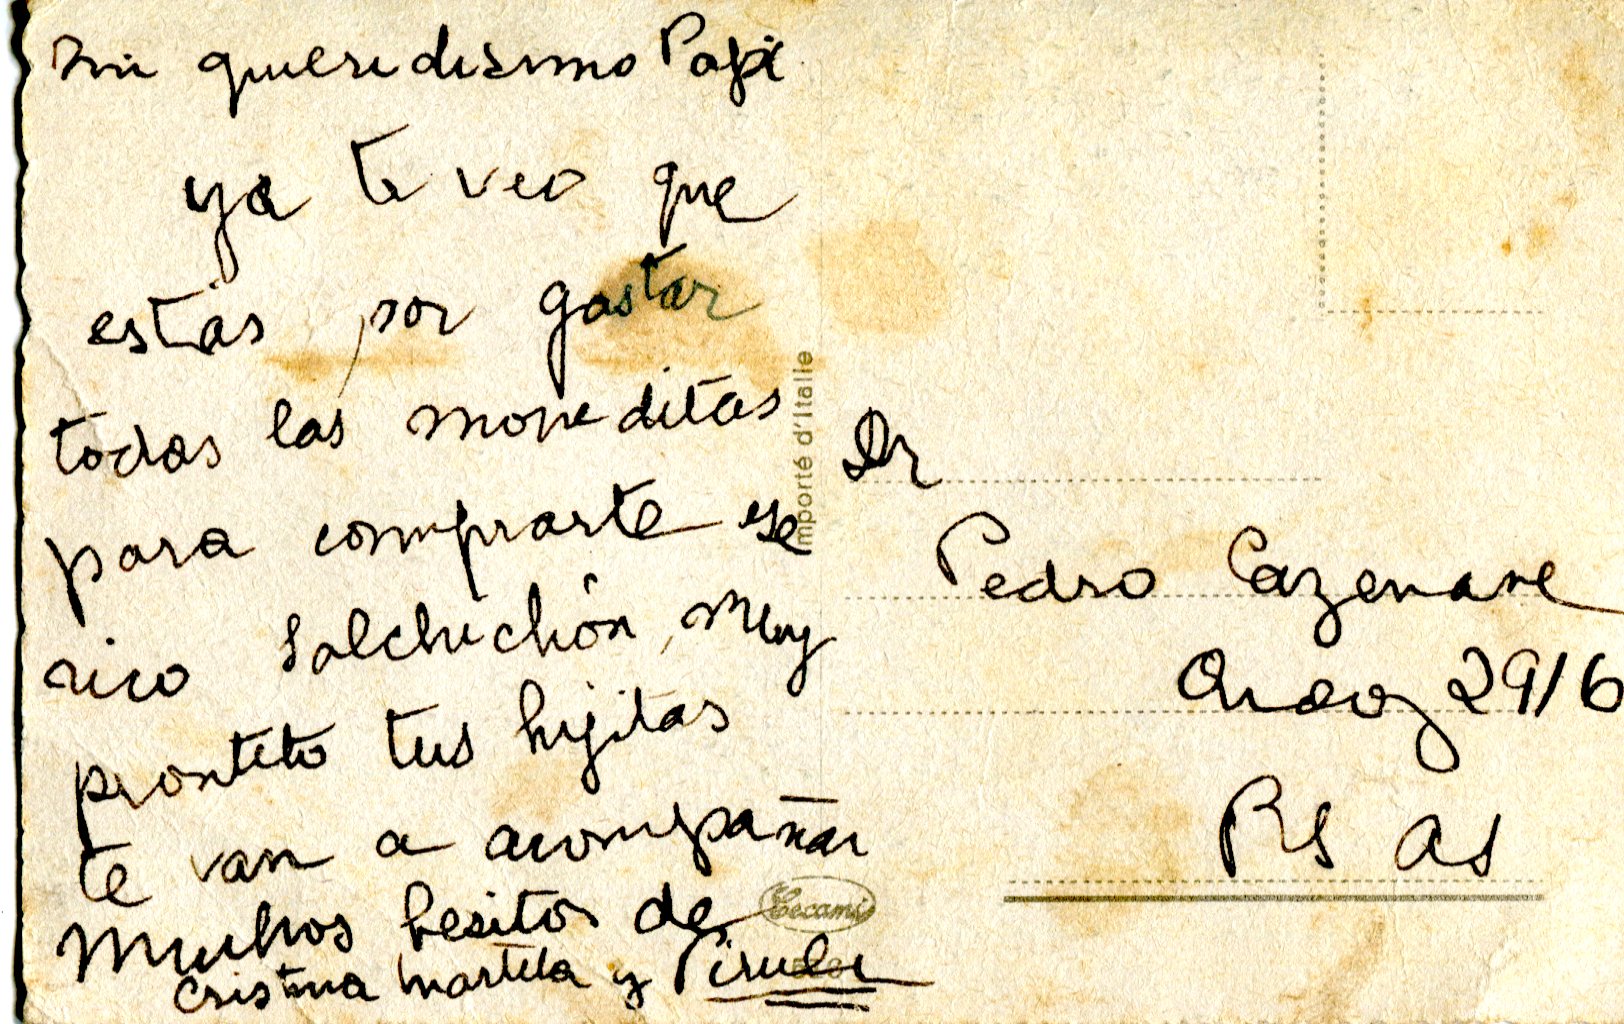 mi queridisimo Papi
ya te veo que
estás por gastar
todas las moneditas
para comprarte ese
rico salchichón, muy
prontito tus hijitas
te van a acompañar
Muchos besitos de
Cristina Martita y Pirule
Importé d'Italie
Cecami
Dr
Pedro Cazenave
Araoz 29/6
Bs as